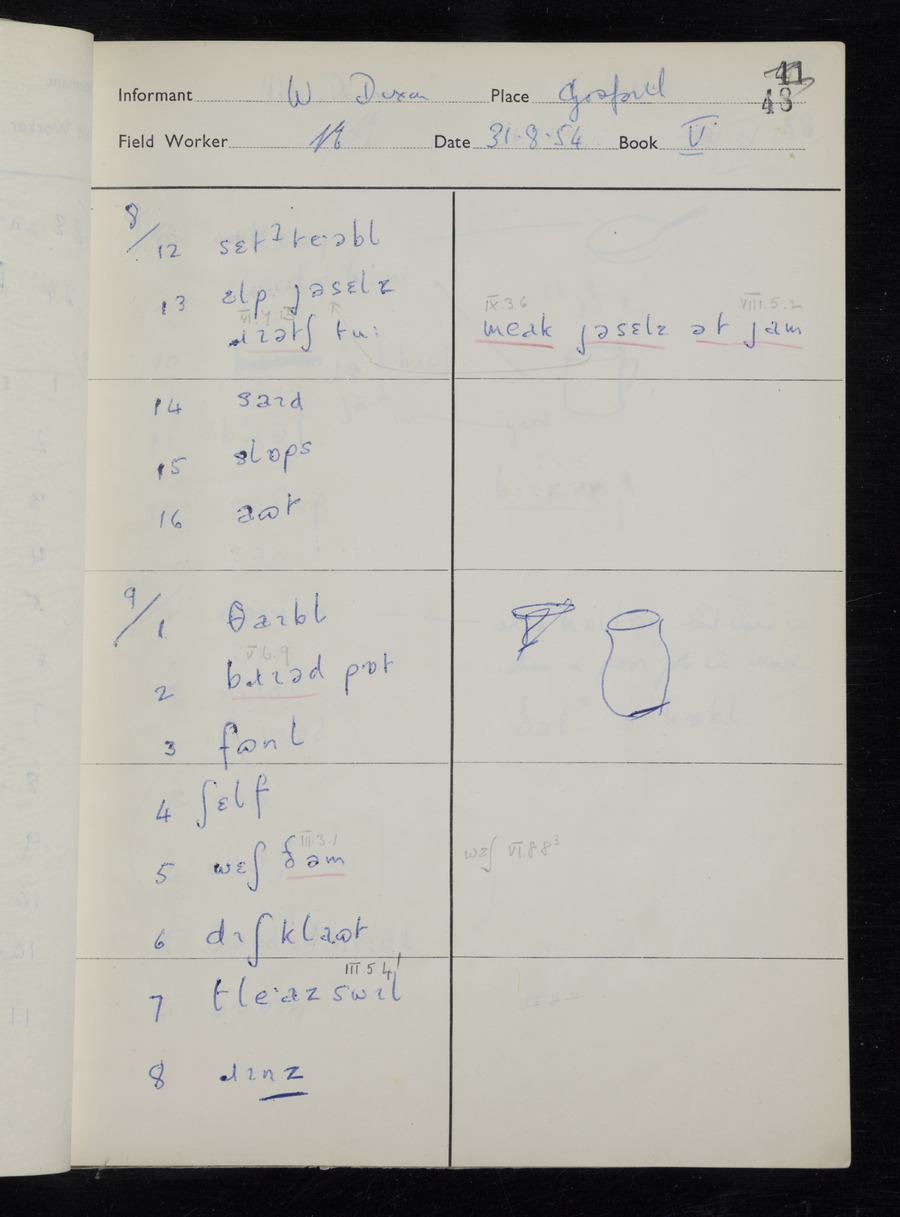 41
43
Informant W Dixon Place Gosforth
Field Worker Date 31·8·54 Book V
8/12 sɛtʔteəbl
13 ɛlp jəsɛlz
VI.7.15
ɹɪətʃ tu:
IX.3.6 VIII.5.2
meak jəsɛlz ət jam
14 saɪd
15 slɒps
16 aʊt
9/1 θaɪbl
V.6.9
2 bɹɪəd pɒt
3 fʊnl
4 ʃɛlf
5 wɛʃ ðəm III.3.1
wɛʃ VI.8.8³
6 dɪʃklaʊt
III.5.4
7 tleˑəz swɪl
8 ɹɪnz